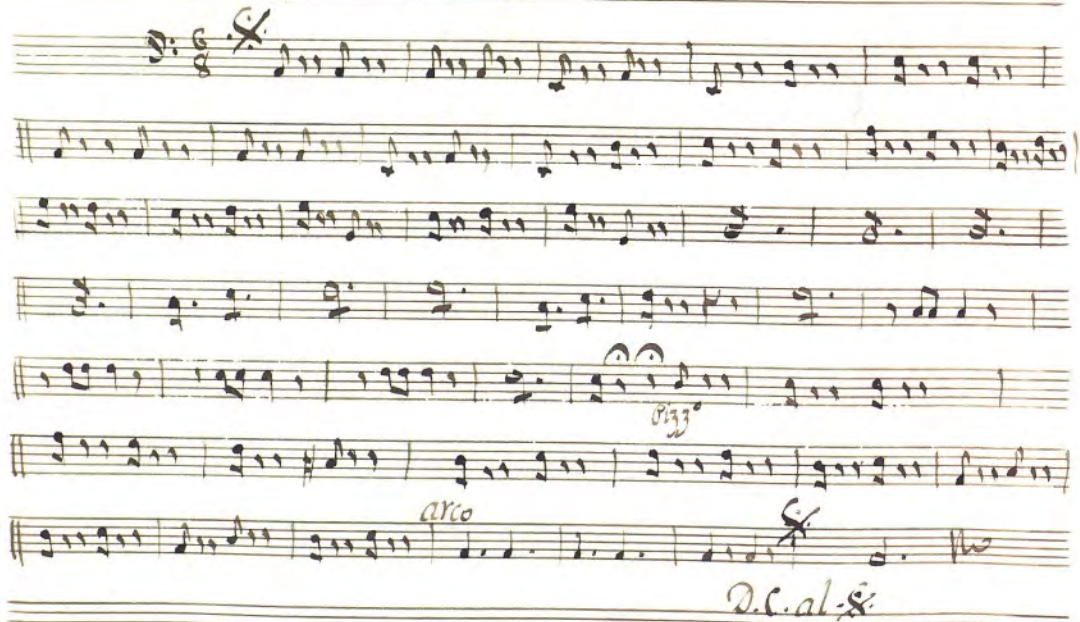 6
8
Pizzº
arco
D.C. al